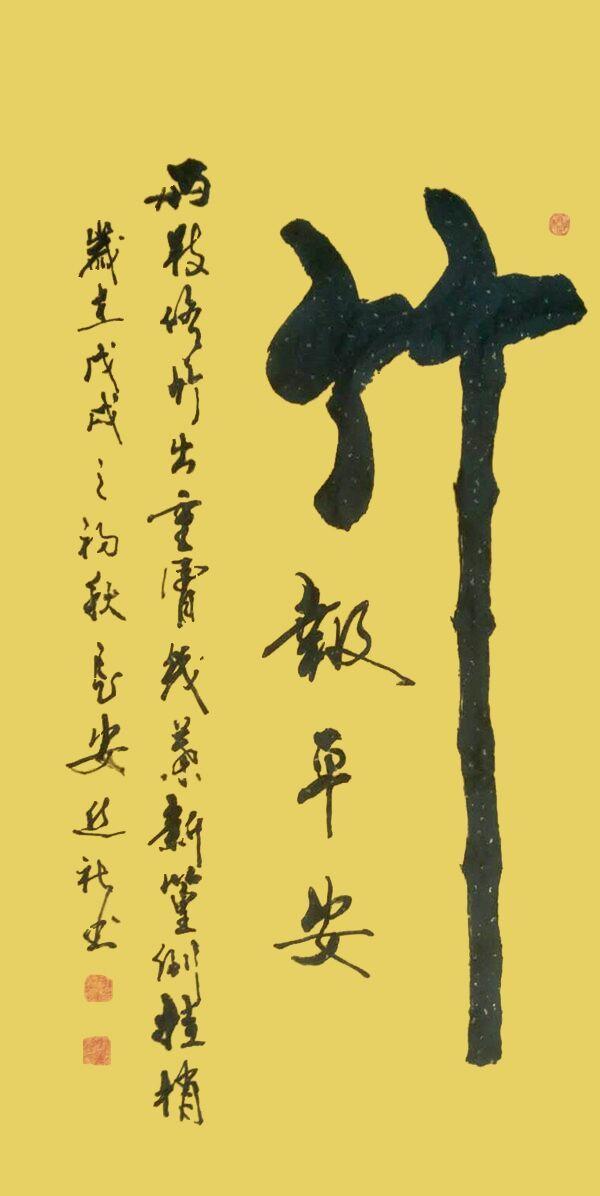 竹報平安
兩枝修竹出重霄幾葉新篁倒挂梢
歲在戊戌之初秋長安社书